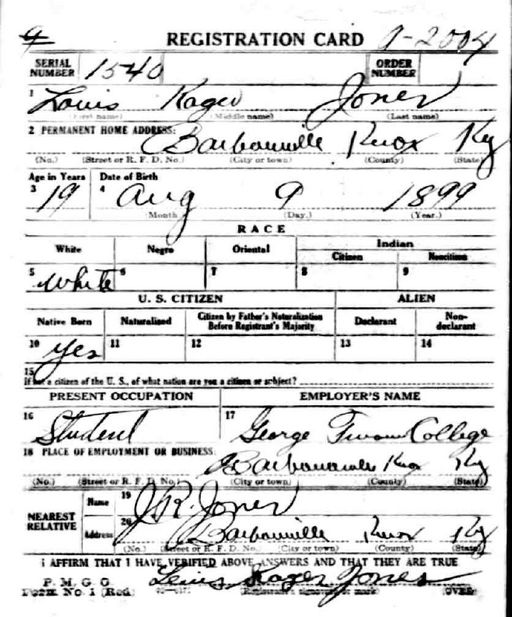 REGISTRATION CARD 9-2004
SERIAL NUMBER 1540 ORDER NUMBER
1 Louis Kager Jones
(First name) (Middle name) (Last name)
2 PERMANENT HOME ADDRESS: Barbourville Knox Ky
(No.) (Street or R. F. D. No.) (City or town) (County) (State)
Age in Years Date of Birth
3 19 4 Aug 9 1899
Month (Day.) (Year.)
RACE
White Negro Oriental Indian
Citizen Noncitizen
5 White 6 7 8 9
U. S. CITIZEN ALIEN
Native Born Naturalized Citizen by Father's Naturalization Before Registrant's Majority Declarant Non-declarant
10 yes 11 12 13 14
15
If not a citizen of the U. S., of what nation are you a citizen or subject?
PRESENT OCCUPATION EMPLOYER'S NAME
16 Student 17 George College
18 PLACE OF EMPLOYMENT OR BUSINESS:
Knox Ky
(No.) (Street or R. F. D. No.) (City or town) (County) (State)
NEAREST RELATIVE Name 19 J. R. Jones
Address 20 Barbourville Knox Ky
(No.) (Street or R. F. D. No.) (City or town) (County) (State)
I AFFIRM THAT I HAVE VERIFIED ABOVE ANSWERS AND THAT THEY ARE TRUE
P. M. G. O. Lewis Kager Jones
Form No. 1 (Red) (Registrant's signature or mark) (OVER)